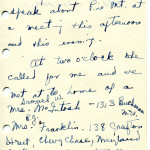 speak about Pie Pat at
a meeting this afternoon
and this evening.
At two o'clock she
called for me and we
met at the home of a
Mrs. Samuel W. McIntosh - 1313
Mrs. Franklin. 138 Grafton
Street Chevy Chase, Maryland